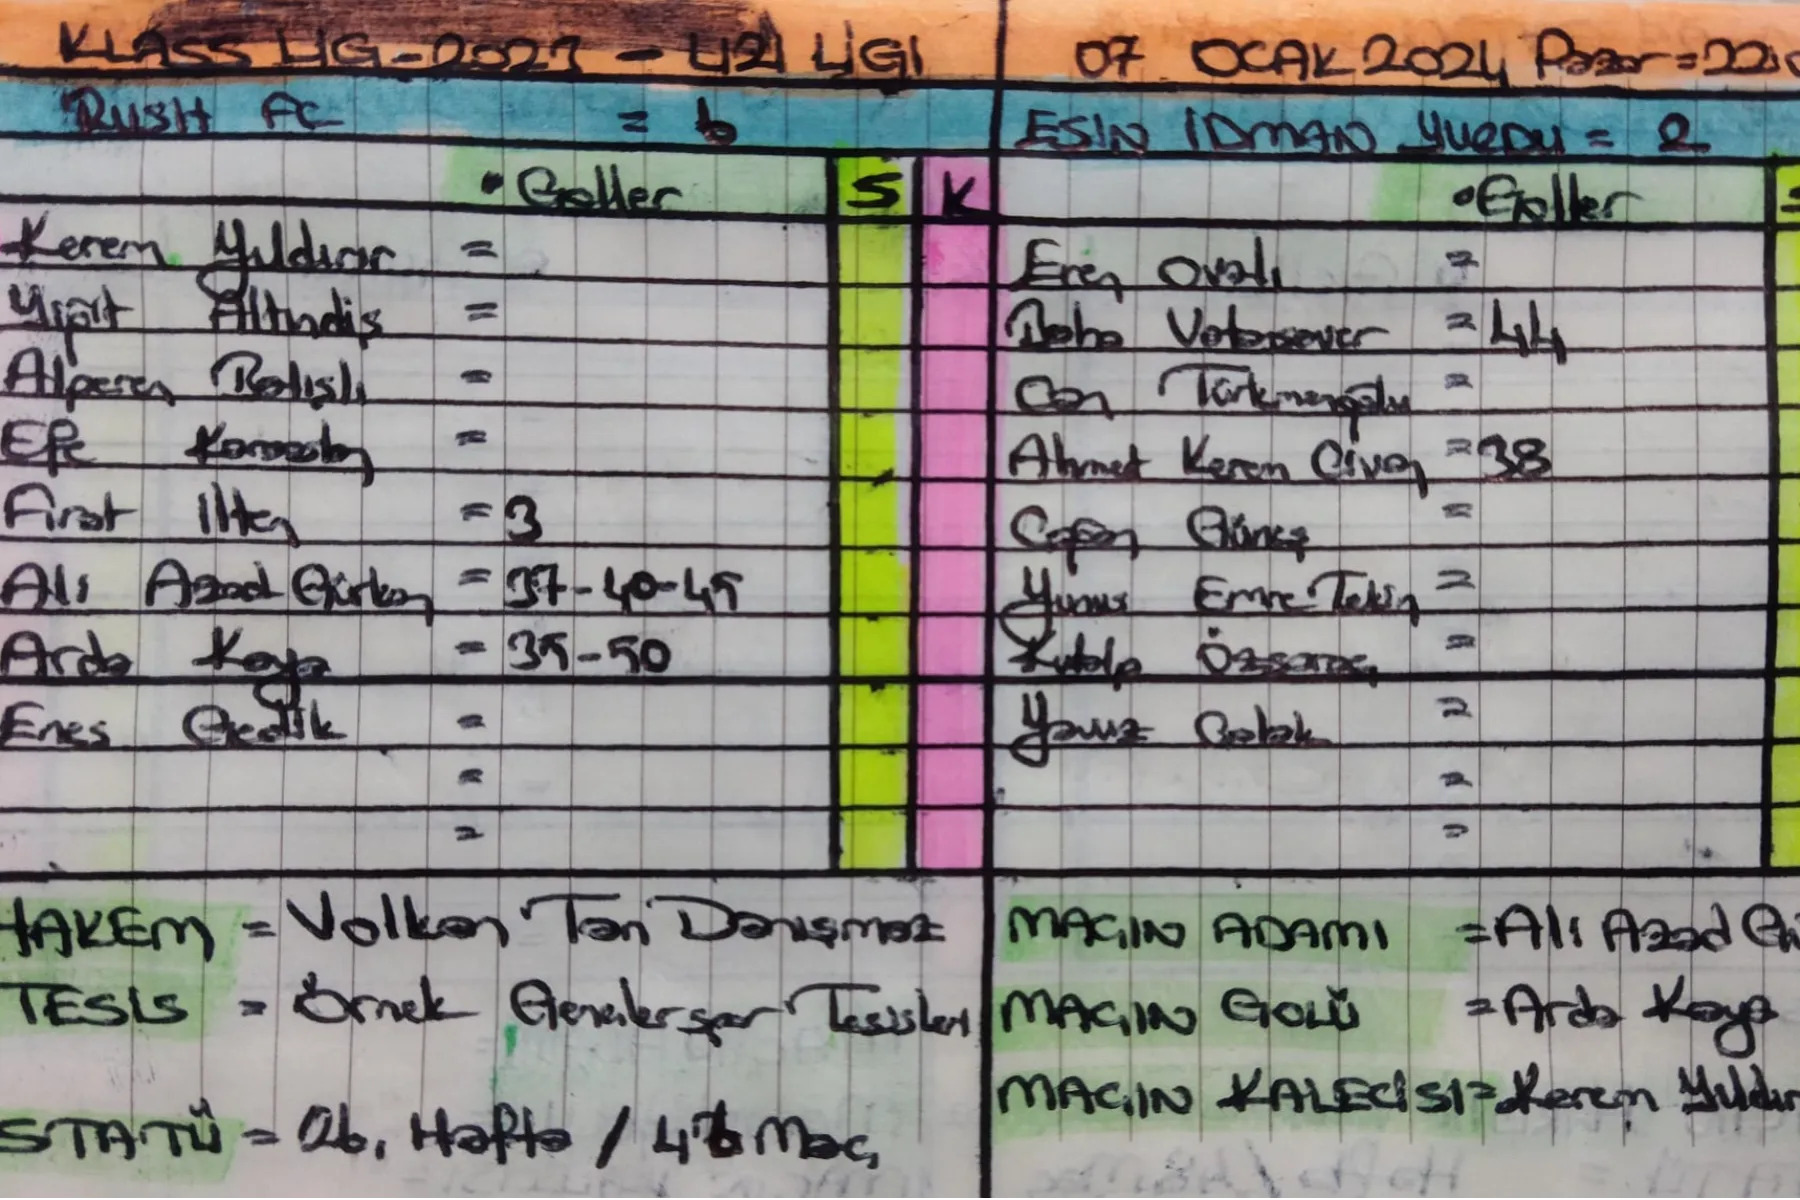 KLASS LİG-2023 - U21 LİGİ
07 OCAK 2024 Pazar=22:0
RUSH FC = 6
ESİN İDMAN YURDU = 2
• Goller S K
• Goller S
Kerem Yıldırır =
Yiğit Altındiş =
Alperen Balışlı =
Efe Karaaslan =
Fırat İlter =3
Ali Azad Gürkan = 37-40-45
Arda Kaya = 35-50
Enes Gedik =
=
=
Eren Ovalı =
Baha Vatansever =44
Can Türkmenoğlu =
Ahmet Kerem Civan =38
Çağan Güneş =
Yunus Emre Tekin =
Kutalp Özsaraç =
Yavuz Çolak =
=
=
HAKEM = Volkan Tan Danışmaz
TESİS = Örnek Gençlerspor Tesisleri
STATÜ = 06. Hafta / 47 Maç
MAÇIN ADAMI =Ali Azad Gü
MAÇIN GOLÜ =Arda Kaya
MAÇIN KALECİSİ=Kerem Yıldır